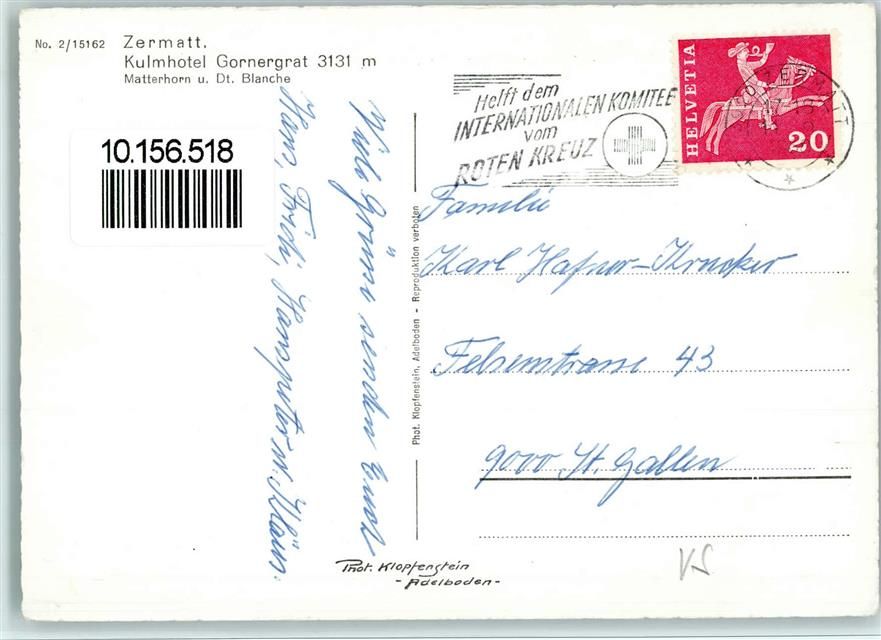 No. 2/15162 Zermatt.
Kulmhotel Gornergrat 3131 m
Matterhorn u. Dt. Blanche
10.156.518
Viele Grüsse senden Euch
Hans, Fridi, Hanspeter u. Kläus.
Phot. Klopfenstein, Adelboden - Reproduktion verboten
Phot. Klopfenstein
- Adelboden -
Helft dem
INTERNATIONALEN KOMITEE
vom
ROTEN KREUZ
HELVETIA
20
ZERMATT
Familie
Karl Hafner-Krucker
Felsenstrasse 43
9000 St. Gallen